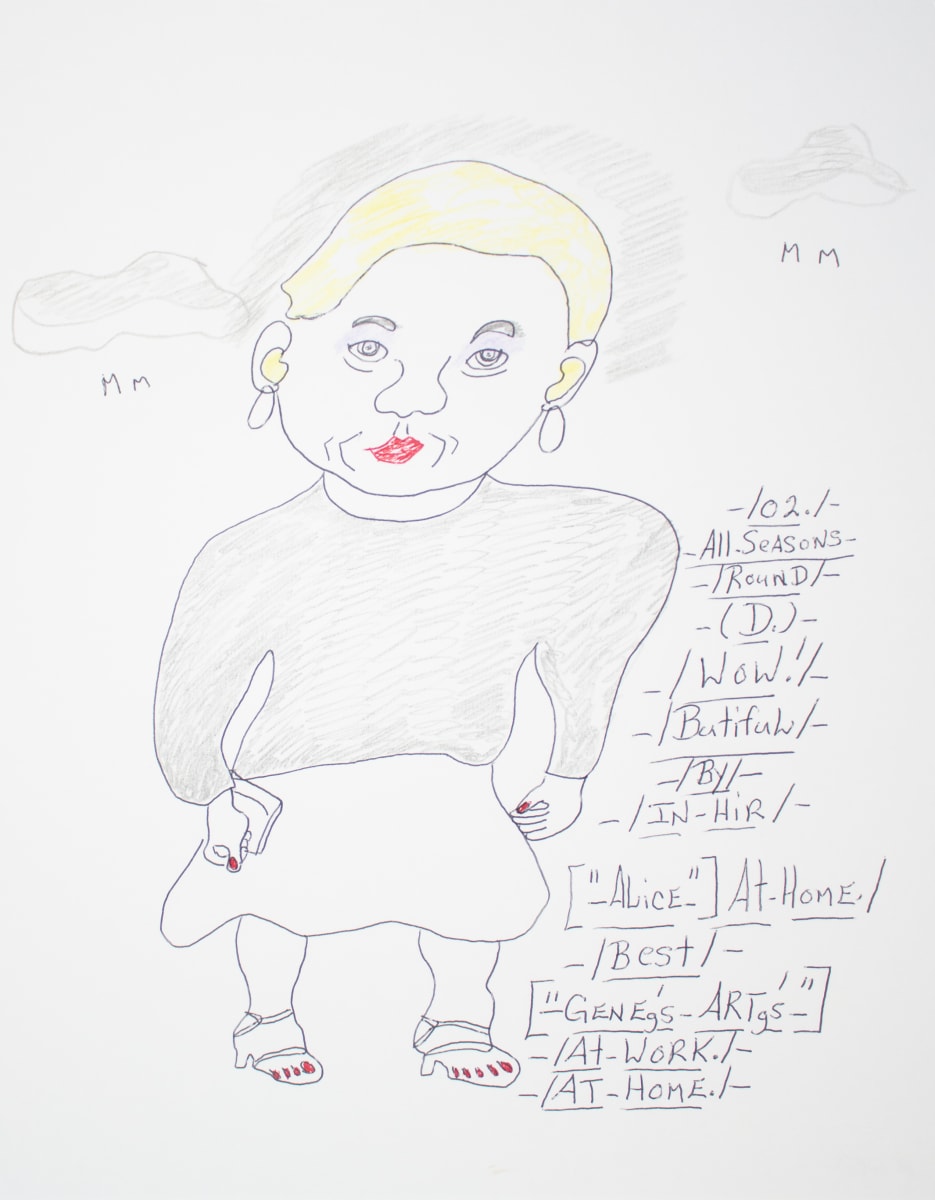 M M
M M
-/02./-
-All-SeASONS-
-/ROUND/-
-(D.)-
-/WOW!/-
-/Butiful/-
-/By/-
-/IN-HiR/-
["-ALiCE-"] At-HOME./
-/Best/-
["-GENEg's-ARTgs'-"]
-/At-WORK./-
-/AT-HOME./-